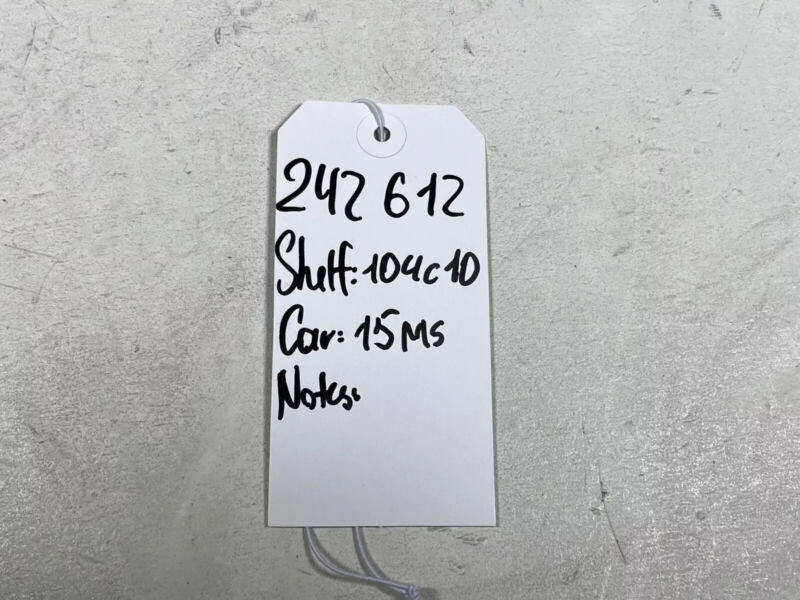 242 612
Shelf: 104c10
Car: 15Ms
Notes: